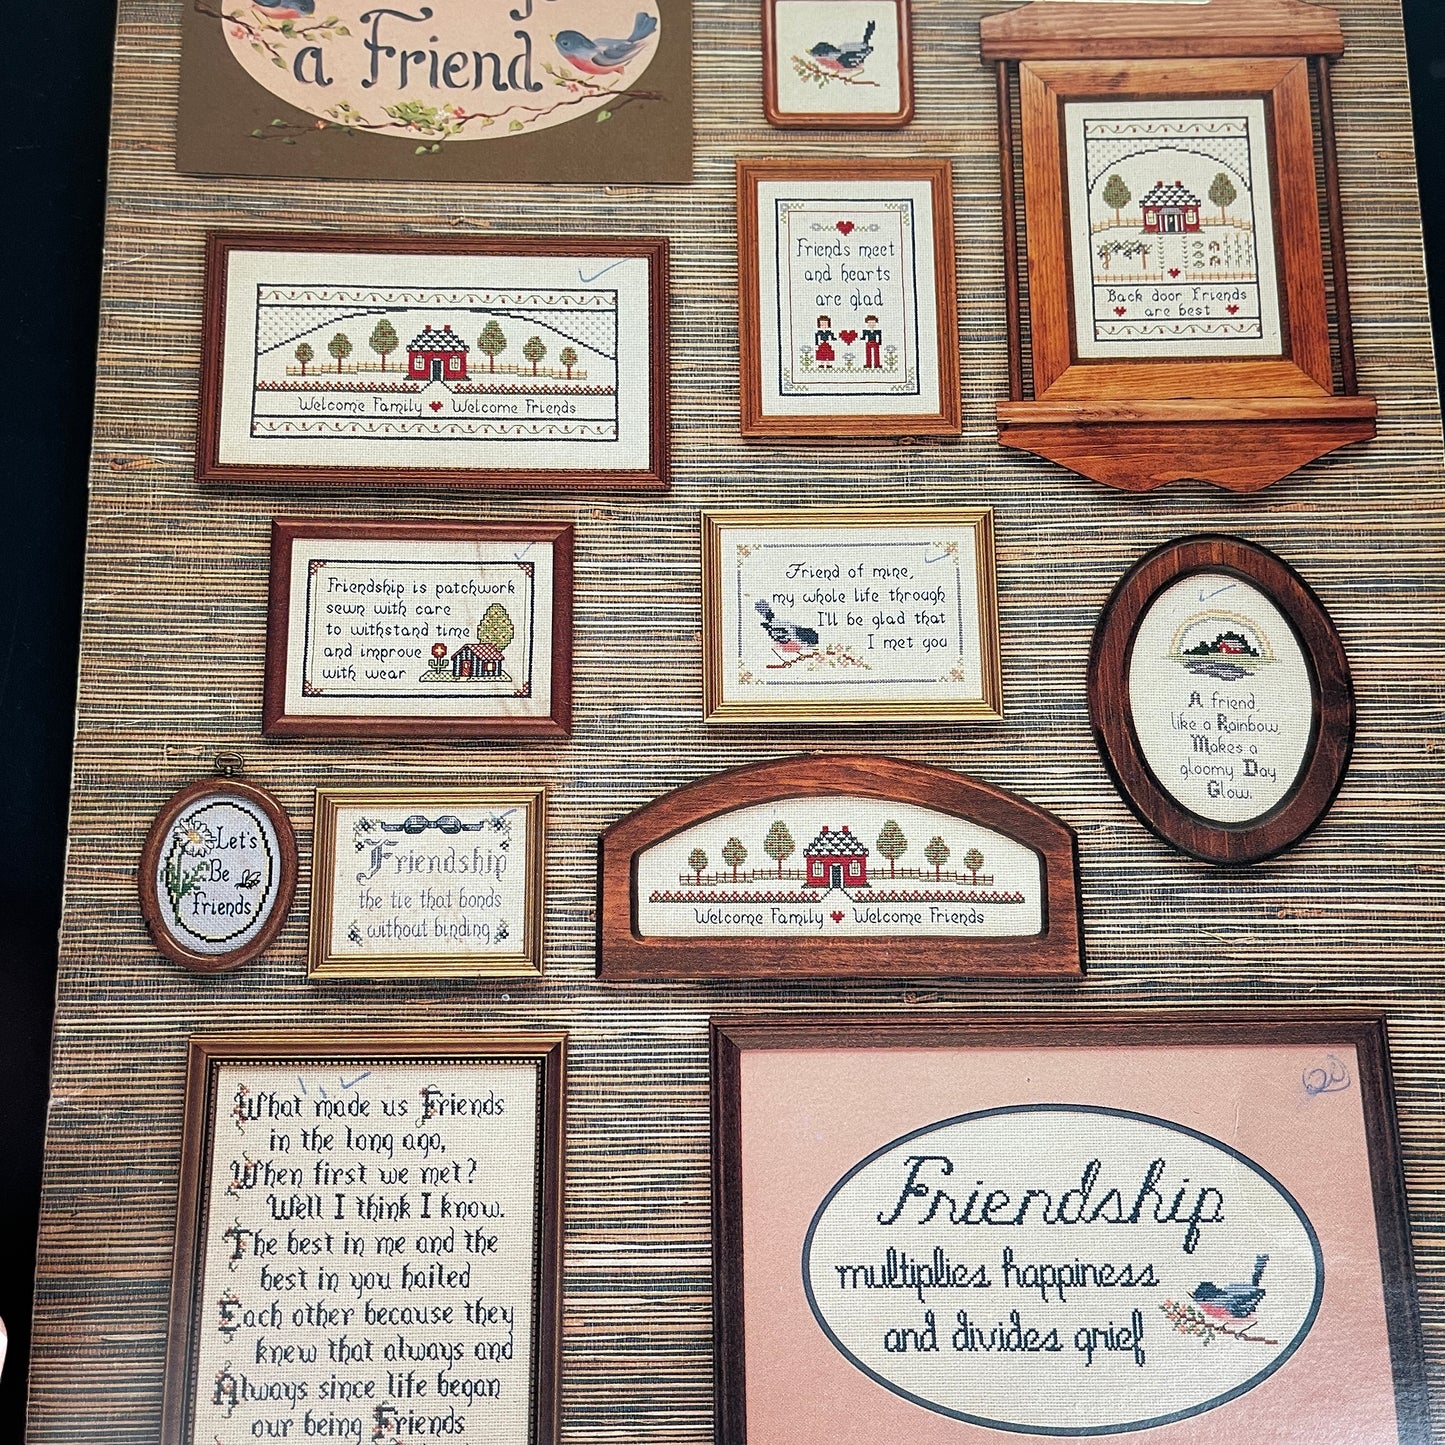 a Friend
Friends meet
and hearts
are glad
Back door Friends
are best
Welcome Family Welcome Friends
Friendship is patchwork
sewn with care
to withstand time
and improve
with wear
Friend of mine,
my whole life through
I'll be glad that
I met you
A friend,
like a Rainbow,
Makes a
gloomy Day
Glow.
Let's
Be
Friends
Friendship
the tie that bonds
without binding
Welcome Family Welcome Friends
What made us Friends
in the long ago,
When first we met?
Well I think I know.
The best in me and the
best in you hailed
Each other because they
knew that always and
Always since life began
our being Friends
Friendship
multiplies happiness
and divides grief